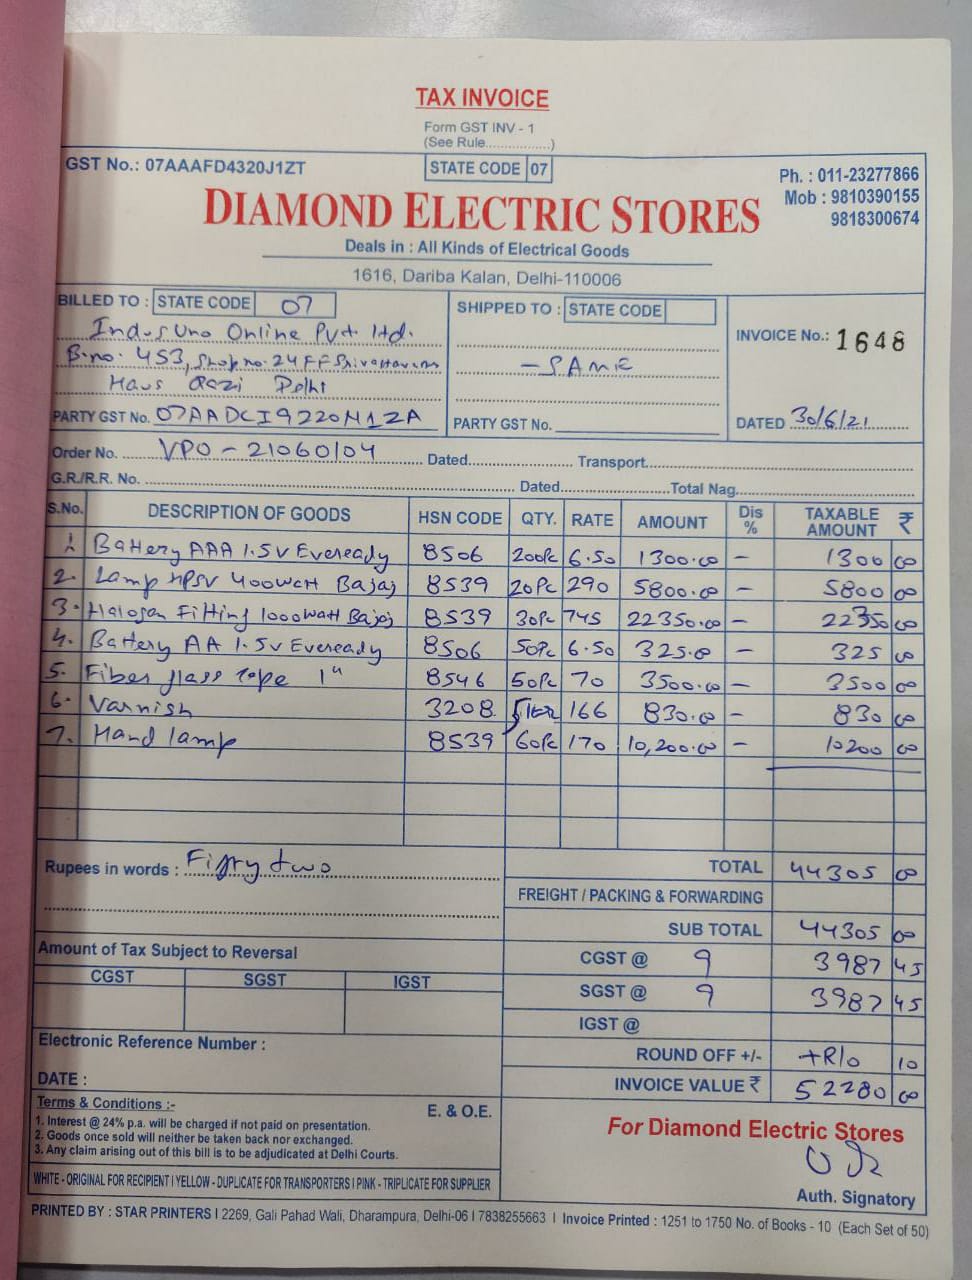 TAX INVOICE
Form GST INV - 1
(See Rule................)
GST No.: 07AAAFD4320J1ZT
STATE CODE 07
Ph. : 011-23277866
Mob : 9810390155
9818300674
DIAMOND ELECTRIC STORES
Deals in : All Kinds of Electrical Goods
1616, Dariba Kalan, Delhi-110006
BILLED TO : STATE CODE 07
IndusUno Online Pvt. ltd.
B.no. 453, Shop no. 24 FF
Haus Qazi Delhi
PARTY GST No. 07AADCI9220M1ZA
SHIPPED TO : STATE CODE
- SAME
PARTY GST No.
INVOICE No.: 1648
DATED 30/6/21
Order No. VPO - 21060104 Dated.................... Transport....................
G.R./R.R. No. .................... Dated.................... Total Nag....................
S.No. DESCRIPTION OF GOODS HSN CODE QTY. RATE AMOUNT Dis % TAXABLE AMOUNT ₹
1. Battery AAA 1.5V Eveready 8506 200Pc 6.50 1300.00 - 1300 00
2. Lamp HPSV 400watt Bajaj 8539 20Pc 290 5800.00 - 5800 00
3. Halogan Fitting 1000watt Bajaj 8539 30Pc 745 22350.00 - 22350 00
4. Battery AA 1.5V Eveready 8506 50Pc 6.50 325.0 - 325 00
5. Fiber glass tape 1" 8546 50Pc 70 3500.00 - 3500 00
6. Varnish 3208 5 166 830.00 - 830 00
7. Hand lamp 8539 60Pc 170 10,200.00 - 10200 00
Rupees in words : Fifty two
TOTAL 44305 00
FREIGHT / PACKING & FORWARDING
SUB TOTAL 44305 00
Amount of Tax Subject to Reversal
CGST SGST IGST
CGST @ 9 3987 45
SGST @ 9 3987 45
IGST @
Electronic Reference Number :
DATE :
ROUND OFF +/- +R/o 10
INVOICE VALUE ₹ 52280 00
Terms & Conditions :-
E. & O.E.
1. Interest @ 24% p.a. will be charged if not paid on presentation.
2. Goods once sold will neither be taken back nor exchanged.
3. Any claim arising out of this bill is to be adjudicated at Delhi Courts.
For Diamond Electric Stores
Auth. Signatory
WHITE - ORIGINAL FOR RECIPIENT I YELLOW - DUPLICATE FOR TRANSPORTERS I PINK - TRIPLICATE FOR SUPPLIER
PRINTED BY : STAR PRINTERS I 2269, Gali Pahad Wali, Dharampura, Delhi-06 I 7838255663 I Invoice Printed : 1251 to 1750 No. of Books - 10 (Each Set of 50)